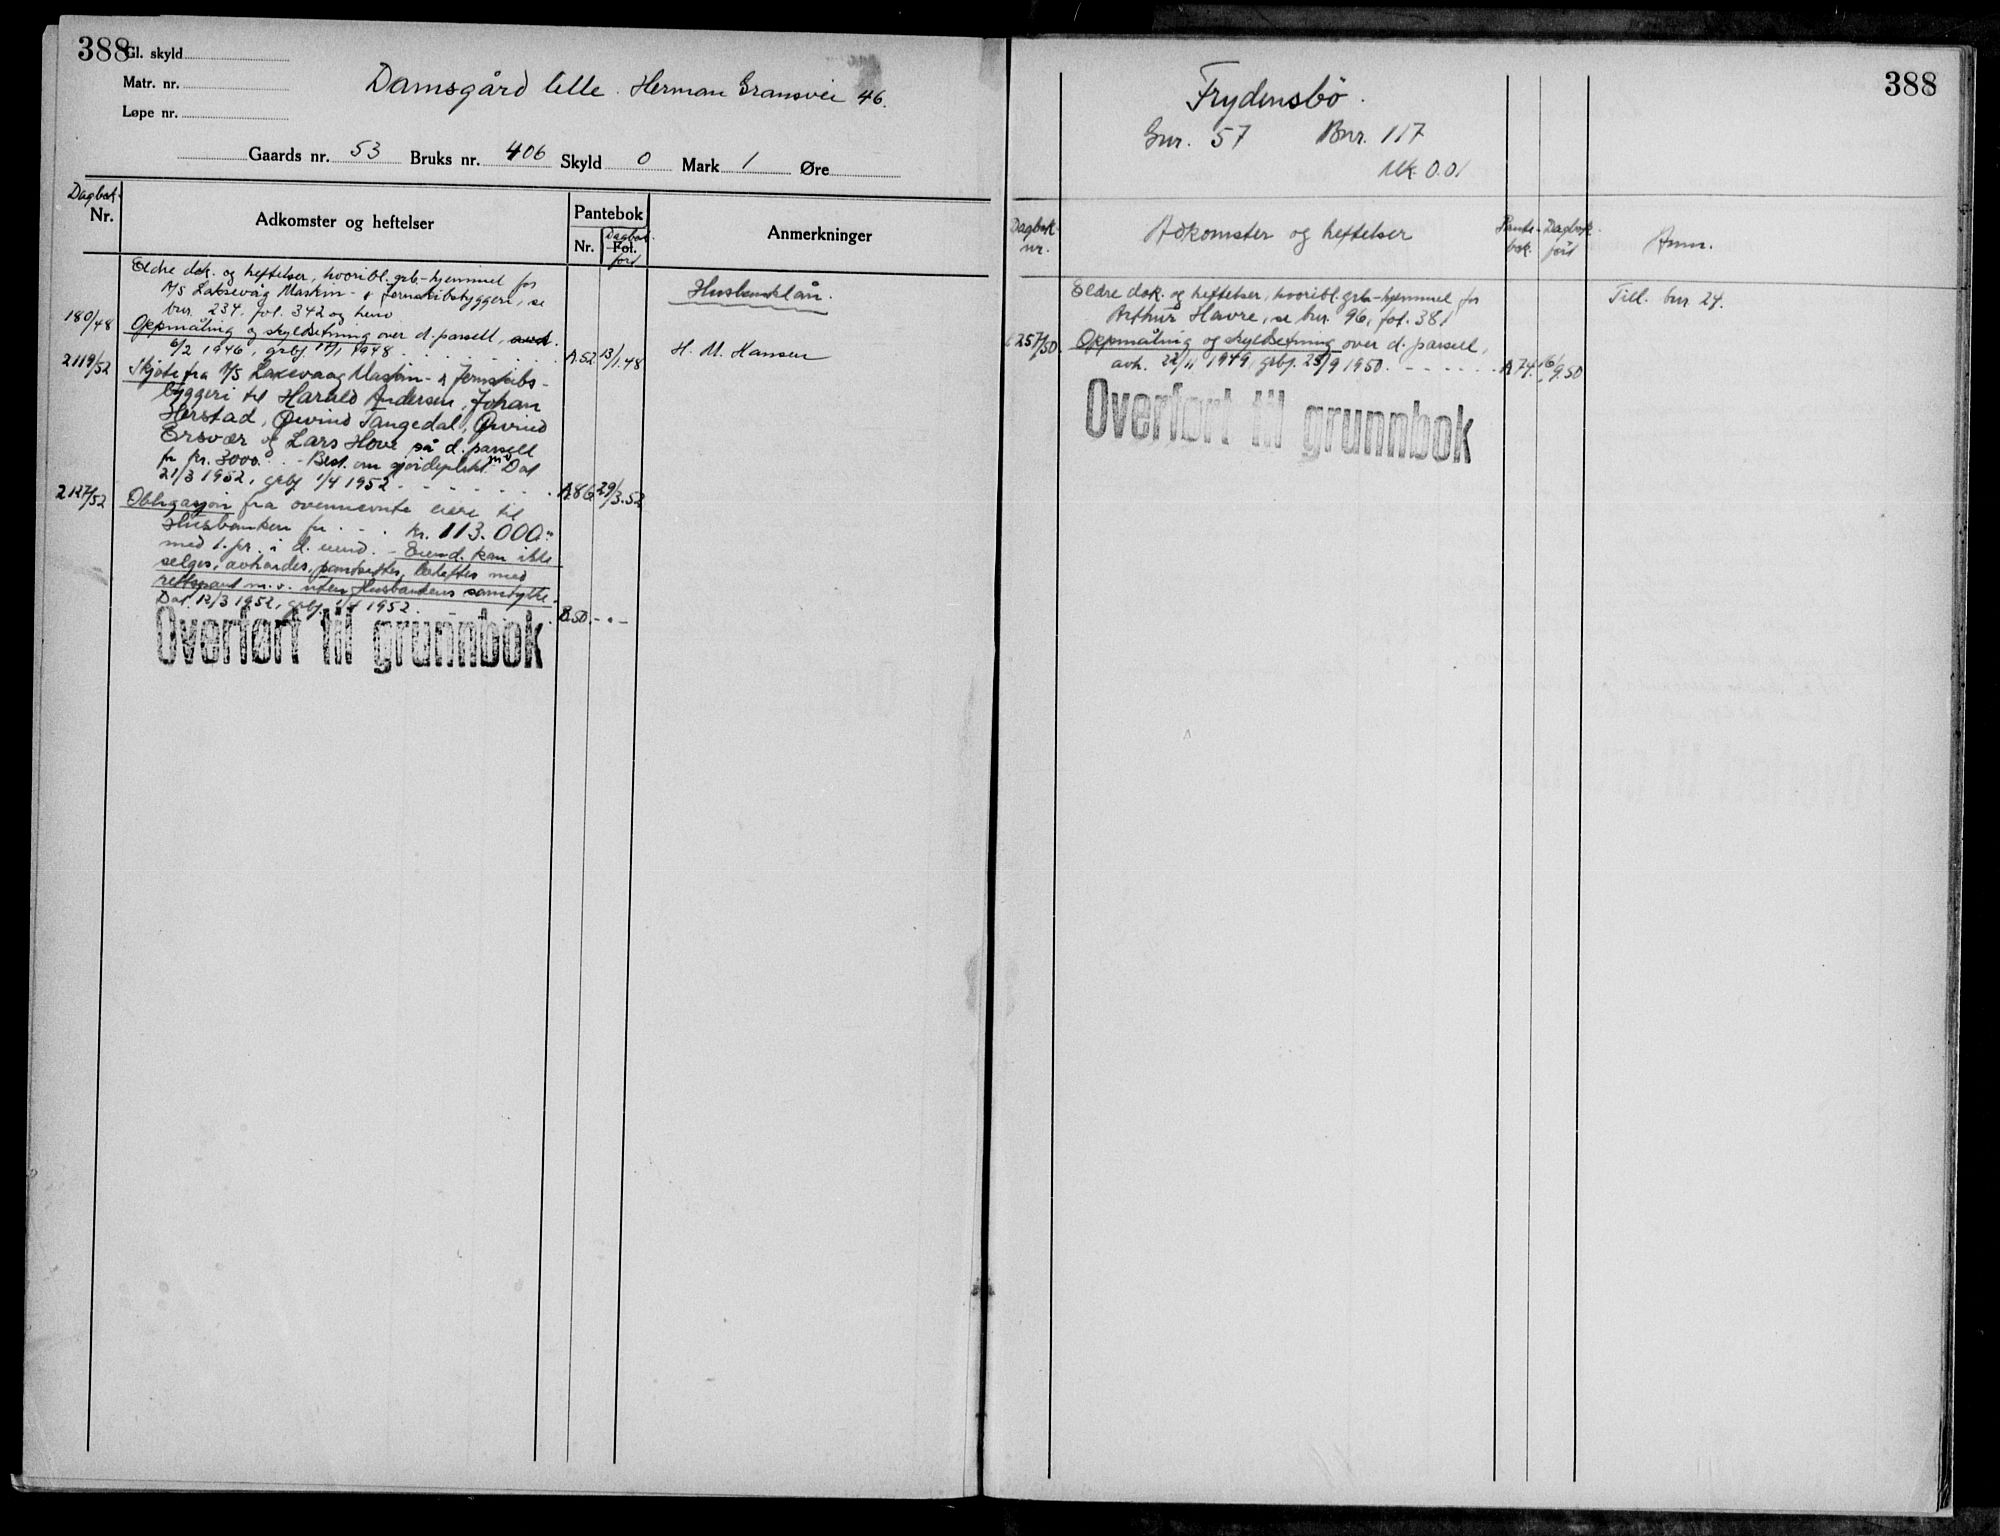 388
Gl. skyld
Matr. nr.
Løpe nr.
Damsgård lille. Herman Gransvei 46.
Gaards nr. 53 Bruks nr. 406 Skyld 0 Mark 1 Øre
Dagbok
Nr.
Adkomster og heftelser
Pantebok
Nr.
Dagbok
Fol.
ført
Anmerkninger
Eldre dok. og heftelser, hvoribl. grb-hjemmel for
A/S Laksevåg Maskin- & Jernskibsbyggeri, se
bnr. 234, fol. 342 og henv
Husbanklån.
180/48 Oppmåling og skyldsetning over d. parsell, avh.
6/2 1946, grbf. 14/1 1948 A.52 13/1.48
H. M. Hansen
2119/52 Skjøte fra A/S Laksevaag Maskin- & Jernskibs-
byggeri til Harald Andersen, Johan
Herstad, Øivind Tangedal, Øivind
Ersvær og Lars Hove på d. parsell
for kr. 3000. - Best. om gjerdeplikt mv Dat
21/3 1952, grbf 1/4 1952 A.86 29/3.52
2127/52 Obligasjon fra ovennevnte eiere til
Husbanken for kr. 113.000.-
med 1. pr. i d. eiend. - Eiend. kan ikke
selges, avhendes, pantsettes, beheftes med
rettspant m.v. uten Husbankens samtykke.
Dat. 12/3 1952, grbf. 1/4 1952. B.50. - " -
Overført til grunnbok
388
Frydensbø.
Gnr. 57 Bnr. 117
Mk 0.01
Dagbok
nr.
Adkomster og heftelser
Pante-
bok.
Dagbok
ført
Anm.
Eldre dok. og heftelser, hvoribl. grb-hjemmel for
Arthur Havre, se bnr. 96, fol. 381
Till. bnr. 24.
6257/50. Oppmåling og skyldsetning over d. parsell,
avh. 22/11 1949, grbf. 25/9 1950. A 74. 16/9.50
Overført til grunnbok